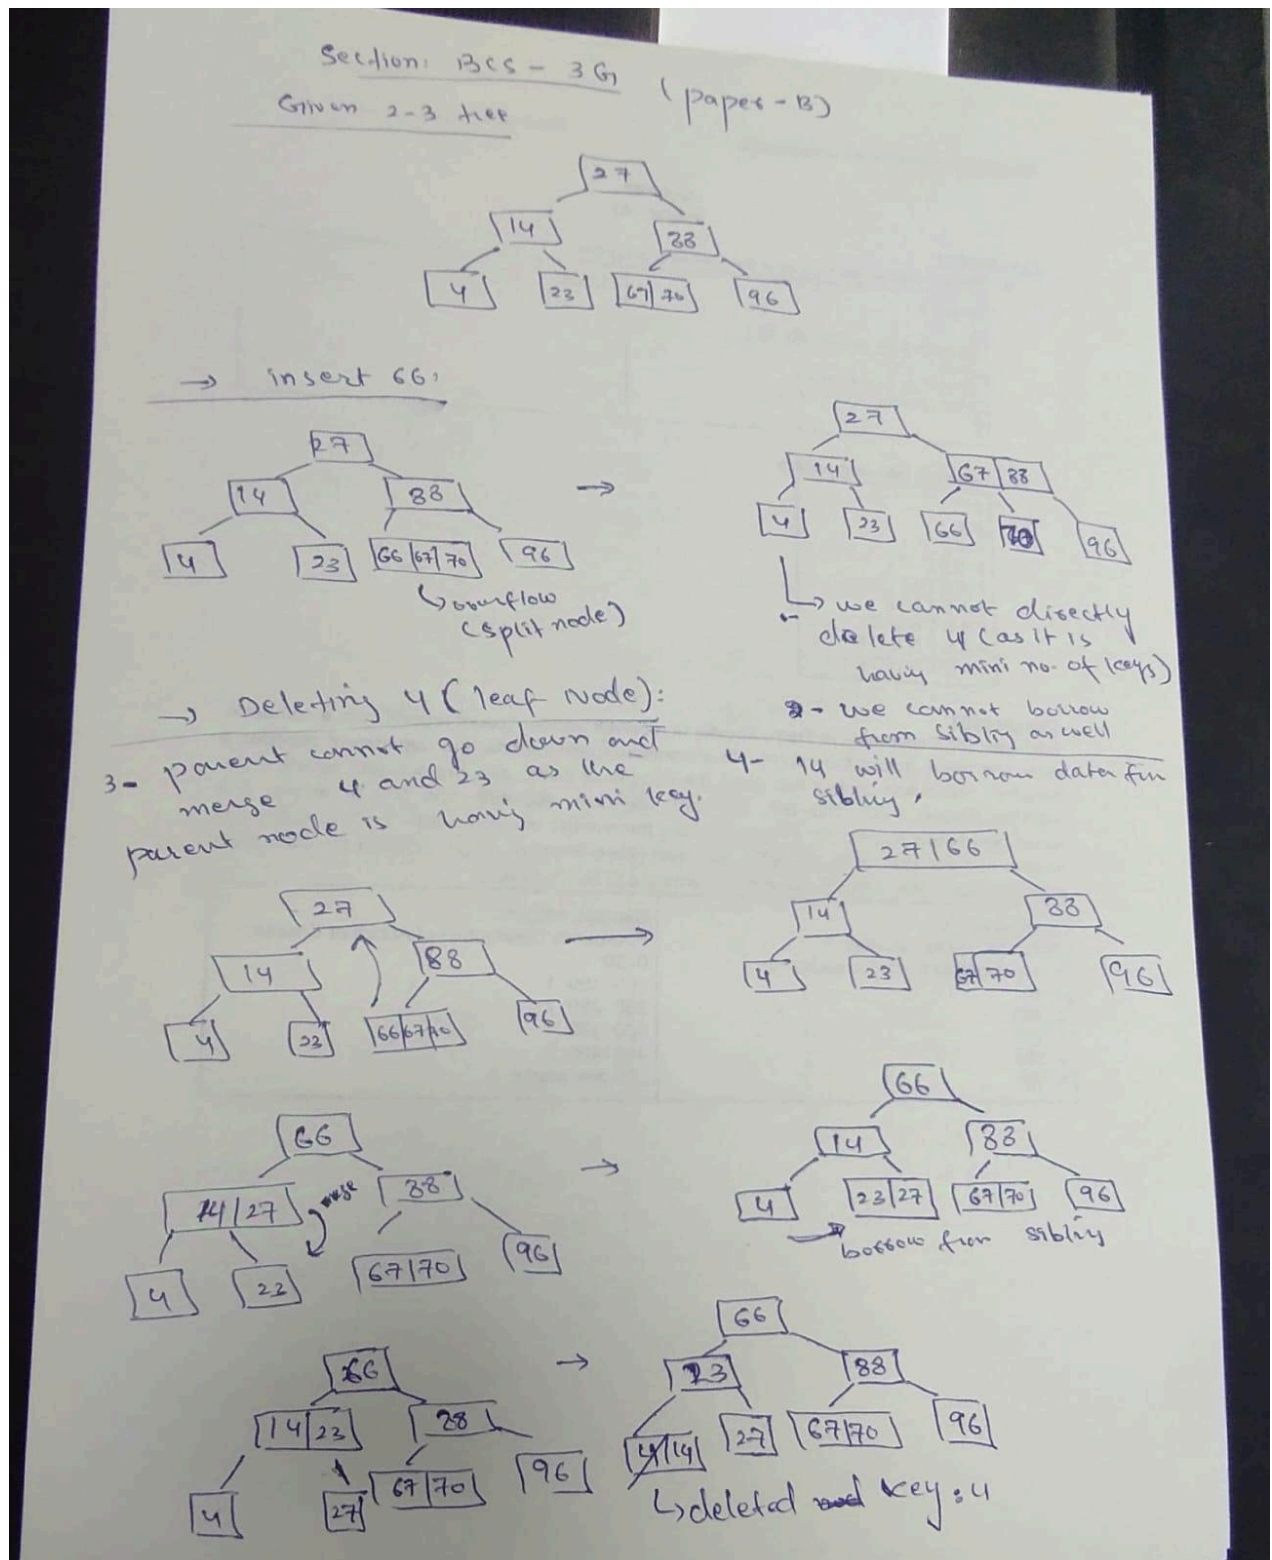 Section: BCS - 3G (paper-B)
Given 2-3 tree
27
14 88
4 23 67|70 96
→ insert 66:
27
14 88
4 23 66|67|70 96
↳ overflow
(split node)
→
27
14 67|88
4 23 66 70 96
↳ we cannot directly
delete 4 (as it is
having mini no. of keys)
2- we cannot borrow
from sibling as well
→ Deleting 4 (leaf Node):
3- parent cannot go down and
merge 4 and 23 as the
parent node is having mini key.
4- 14 will borrow data
sibling.
27
14 88
4 23 66|67|70 96
→
27|66
14 88
4 23 67|70 96
66
14|27 88
4 23 67|70 96
→
66
14 88
4 23|27 67|70 96
borrow from sibling
66
14|23 88
4 27 67|70 96
→
66
23 88
4|14 27 67|70 96
↳ deleted key: 4